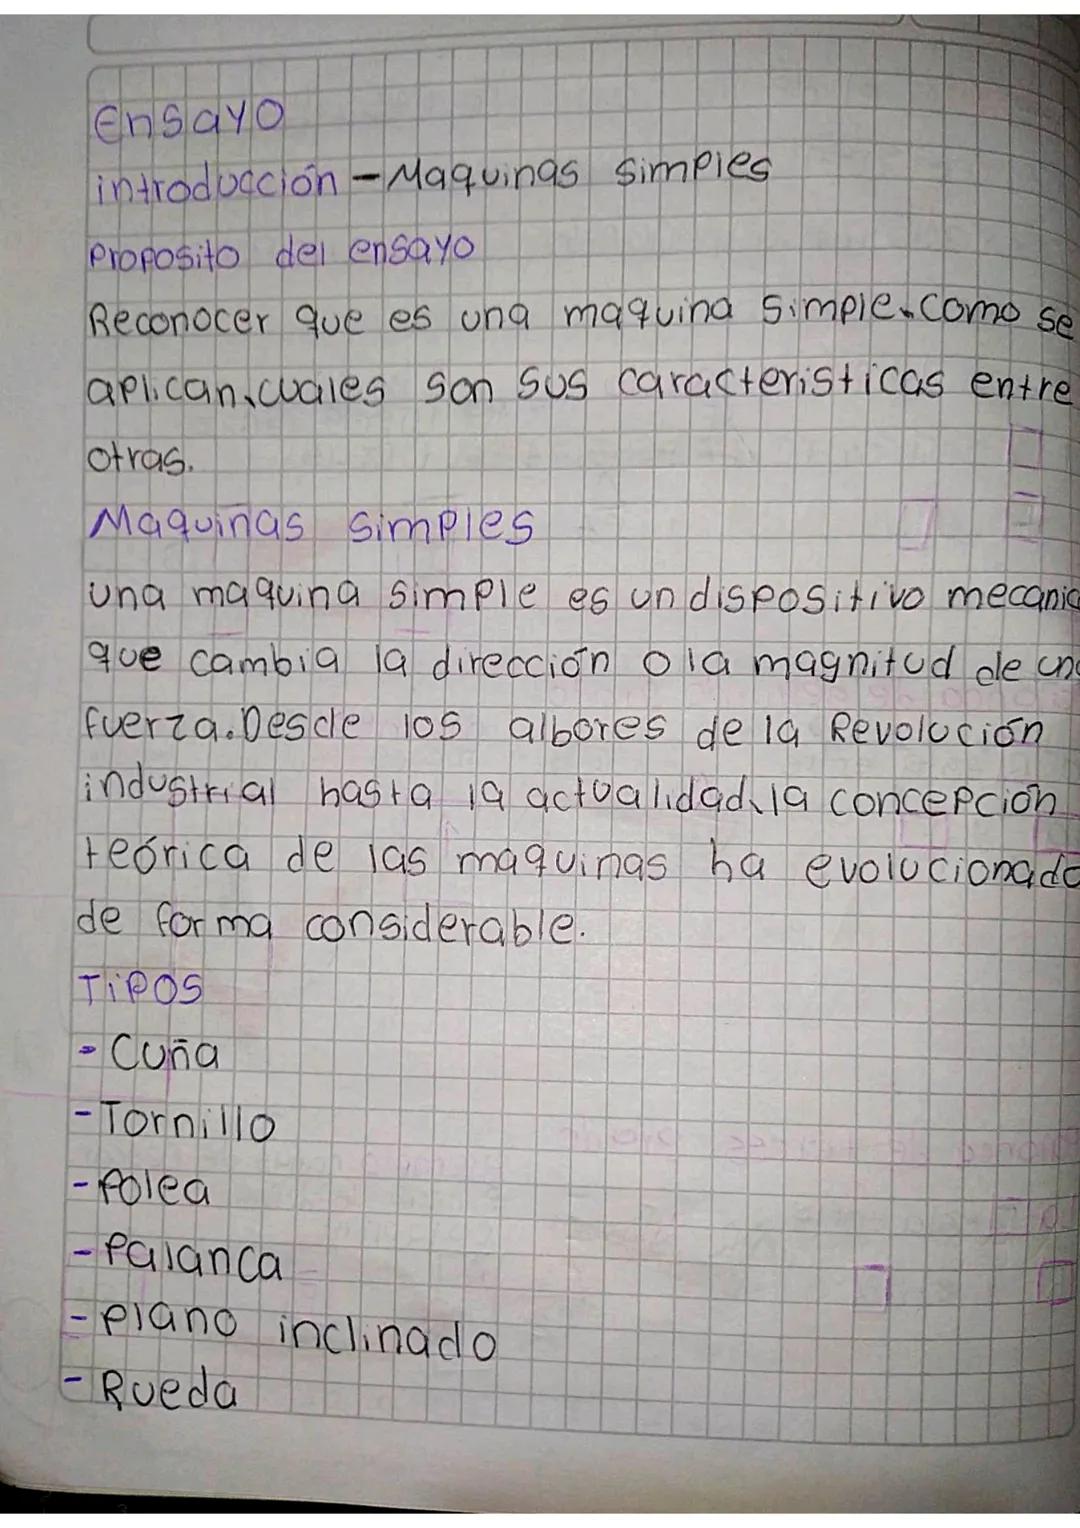 Ensayo
introducción - Maquinas simples
Proposito del ensayo
Reconocer que es una maquina simple, como se
aplican, cuales son sus caracteristicas entre
otras.
Maquinas simples
una maquina simple es un dispositivo mecanic
que cambia la dirección o la magnitud de una
fuerza. Desde los albores de la Revolución
industrial hasta la actualidad, la concepción
teórica de las maquinas ha evolucionado
de forma considerable.
Tipos
- Cuña
- Tornillo
- Polea
- Palanca
- Plano inclinado
- Rueda